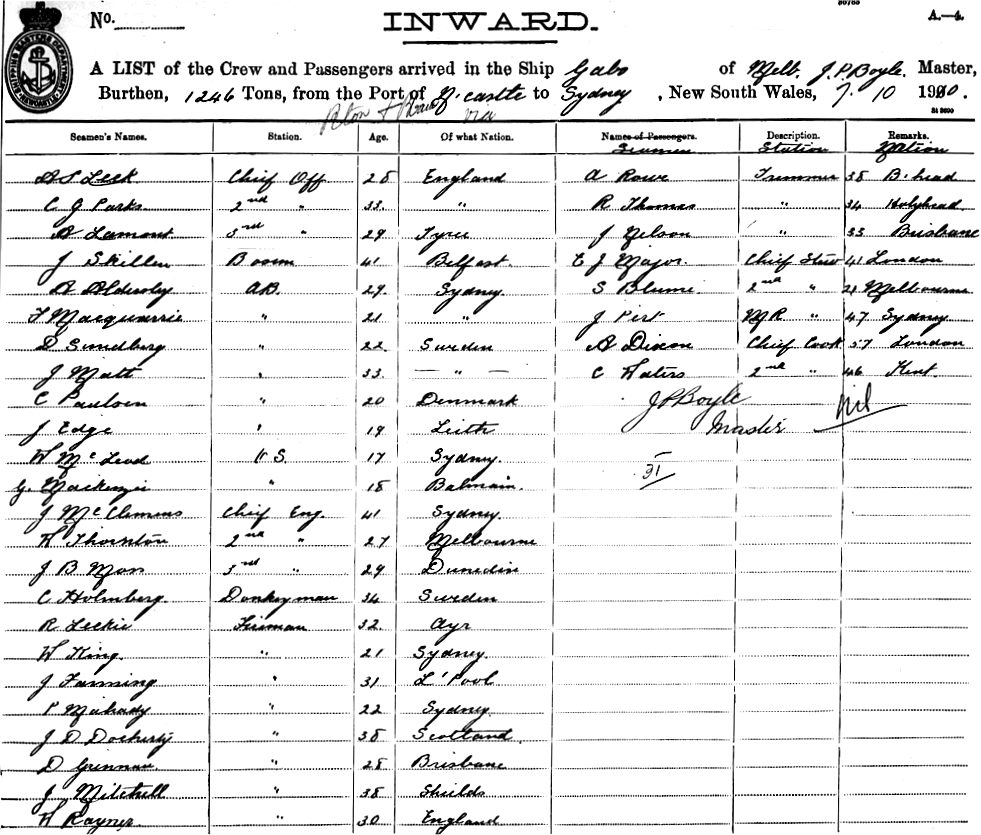 No.
INWARD.
A.—4.
A LIST of the Crew and Passengers arrived in the Ship Gabo of Melb. J.P.Boyle. Master,
Burthen, 1246 Tons, from the Port of N'castle to Sydney, New South Wales, 7. 10 1900.
via
Seamen's Names. Station. Age. Of what Nation. Names of Passengers. Description. Remarks.
Seamen Station Nation
A S Leck Chief Off 28 England A Rowe Trimmer 38 B'head
C G Parks 2nd " 33 " R Thomas " 34 Holyhead
A Lamont 3rd " 29 Tyree J Nelson " 33 Brisbane
J Skillen Bosun 41 Belfast. E J Major. Chief Stew 41 London
A Aldersley AB. 29. Sydney S Blume 2nd " 21 Melbourne
F Macquarrie " 21 " J Pert MR " 47 Sydney
D Sundberg " 22 Sweden A Dixon Chief Cook 57 London
J Matt " 33. — " — C Waters 2nd " 46 Kent.
C Paulsen " 20 Denmark J P Boyle nil
J Edge " 19 Leith Master
W McLeod O.S. 17 Sydney. 31
G. Mackenzie " 18 Balmain.
J McClemens Chief Eng. 41 Sydney.
W Thornton 2nd " 27 Melbourne
J B Mon 3rd " 29 Dunedin
C Holmberg. Donkeyman 34 Sweden
R Leckie Fireman 32 Ayr
W King. " 21 Sydney.
J Fanning " 31 L'Pool
P Mahady " 22 Sydney
J D Docherty " 38 Scotland
D Grennan " 28 Brisbane
J Mitchell " 38 Shields
W Rayner " 30 England